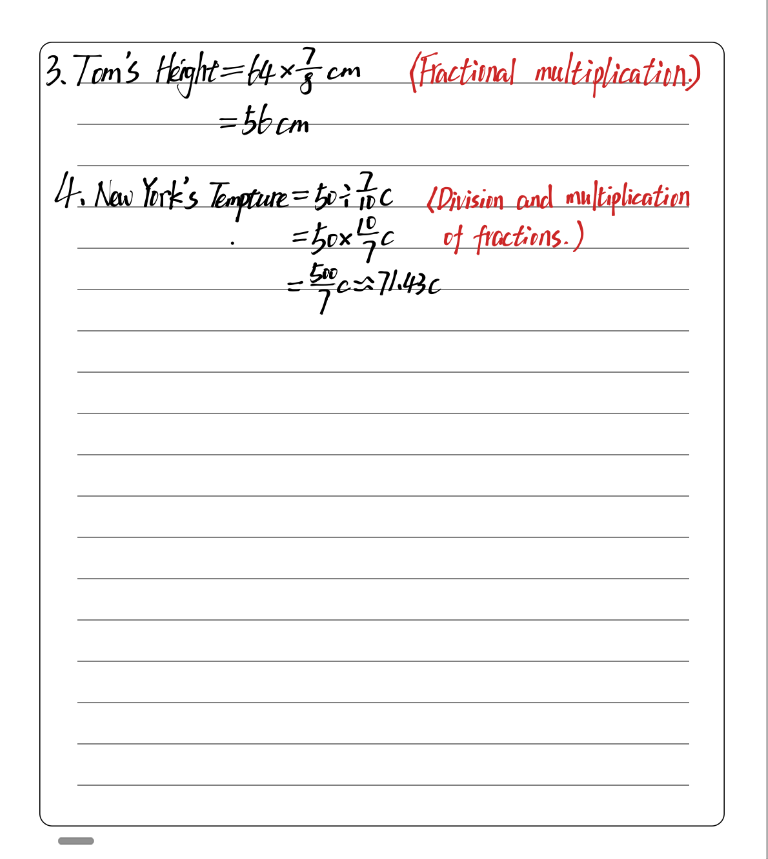 3. Tom's Height = 64 × 7/8 cm (Fractional multiplication.)
= 56 cm
4. New York's Tempture = 50 ÷ 7/10 C (Division and multiplication
= 50 × 10/7 C of fractions.)
= 500/7 C ≈ 71.43C